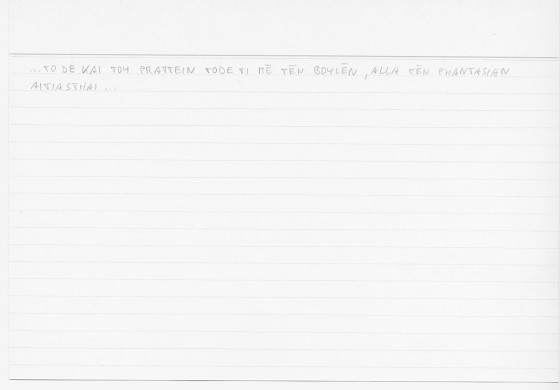 ...TO DE KAI TOY PRATTEIN TODE TI MĒ TĒN BOYLĒN, ALLA TĒN PHANTASIAN
AITIASTHAI ...